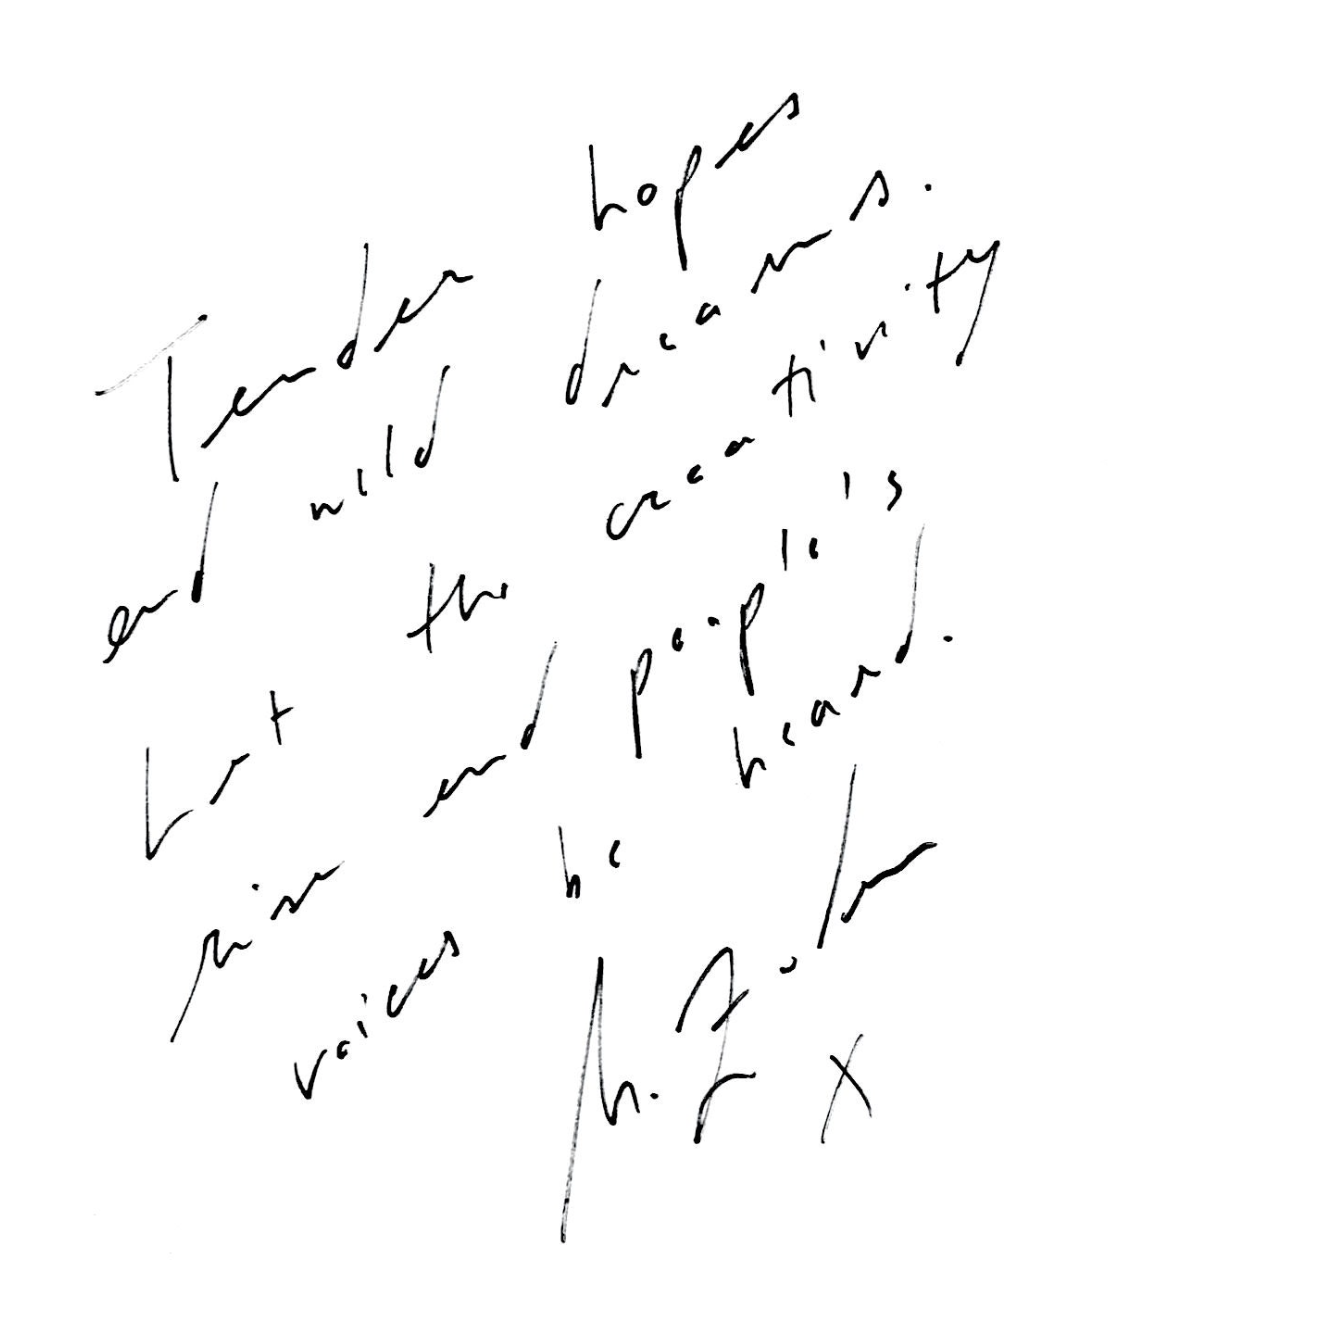 Tender hopes
and wild dreams.
Let the creativity
rise and people's
voices be heard.
x